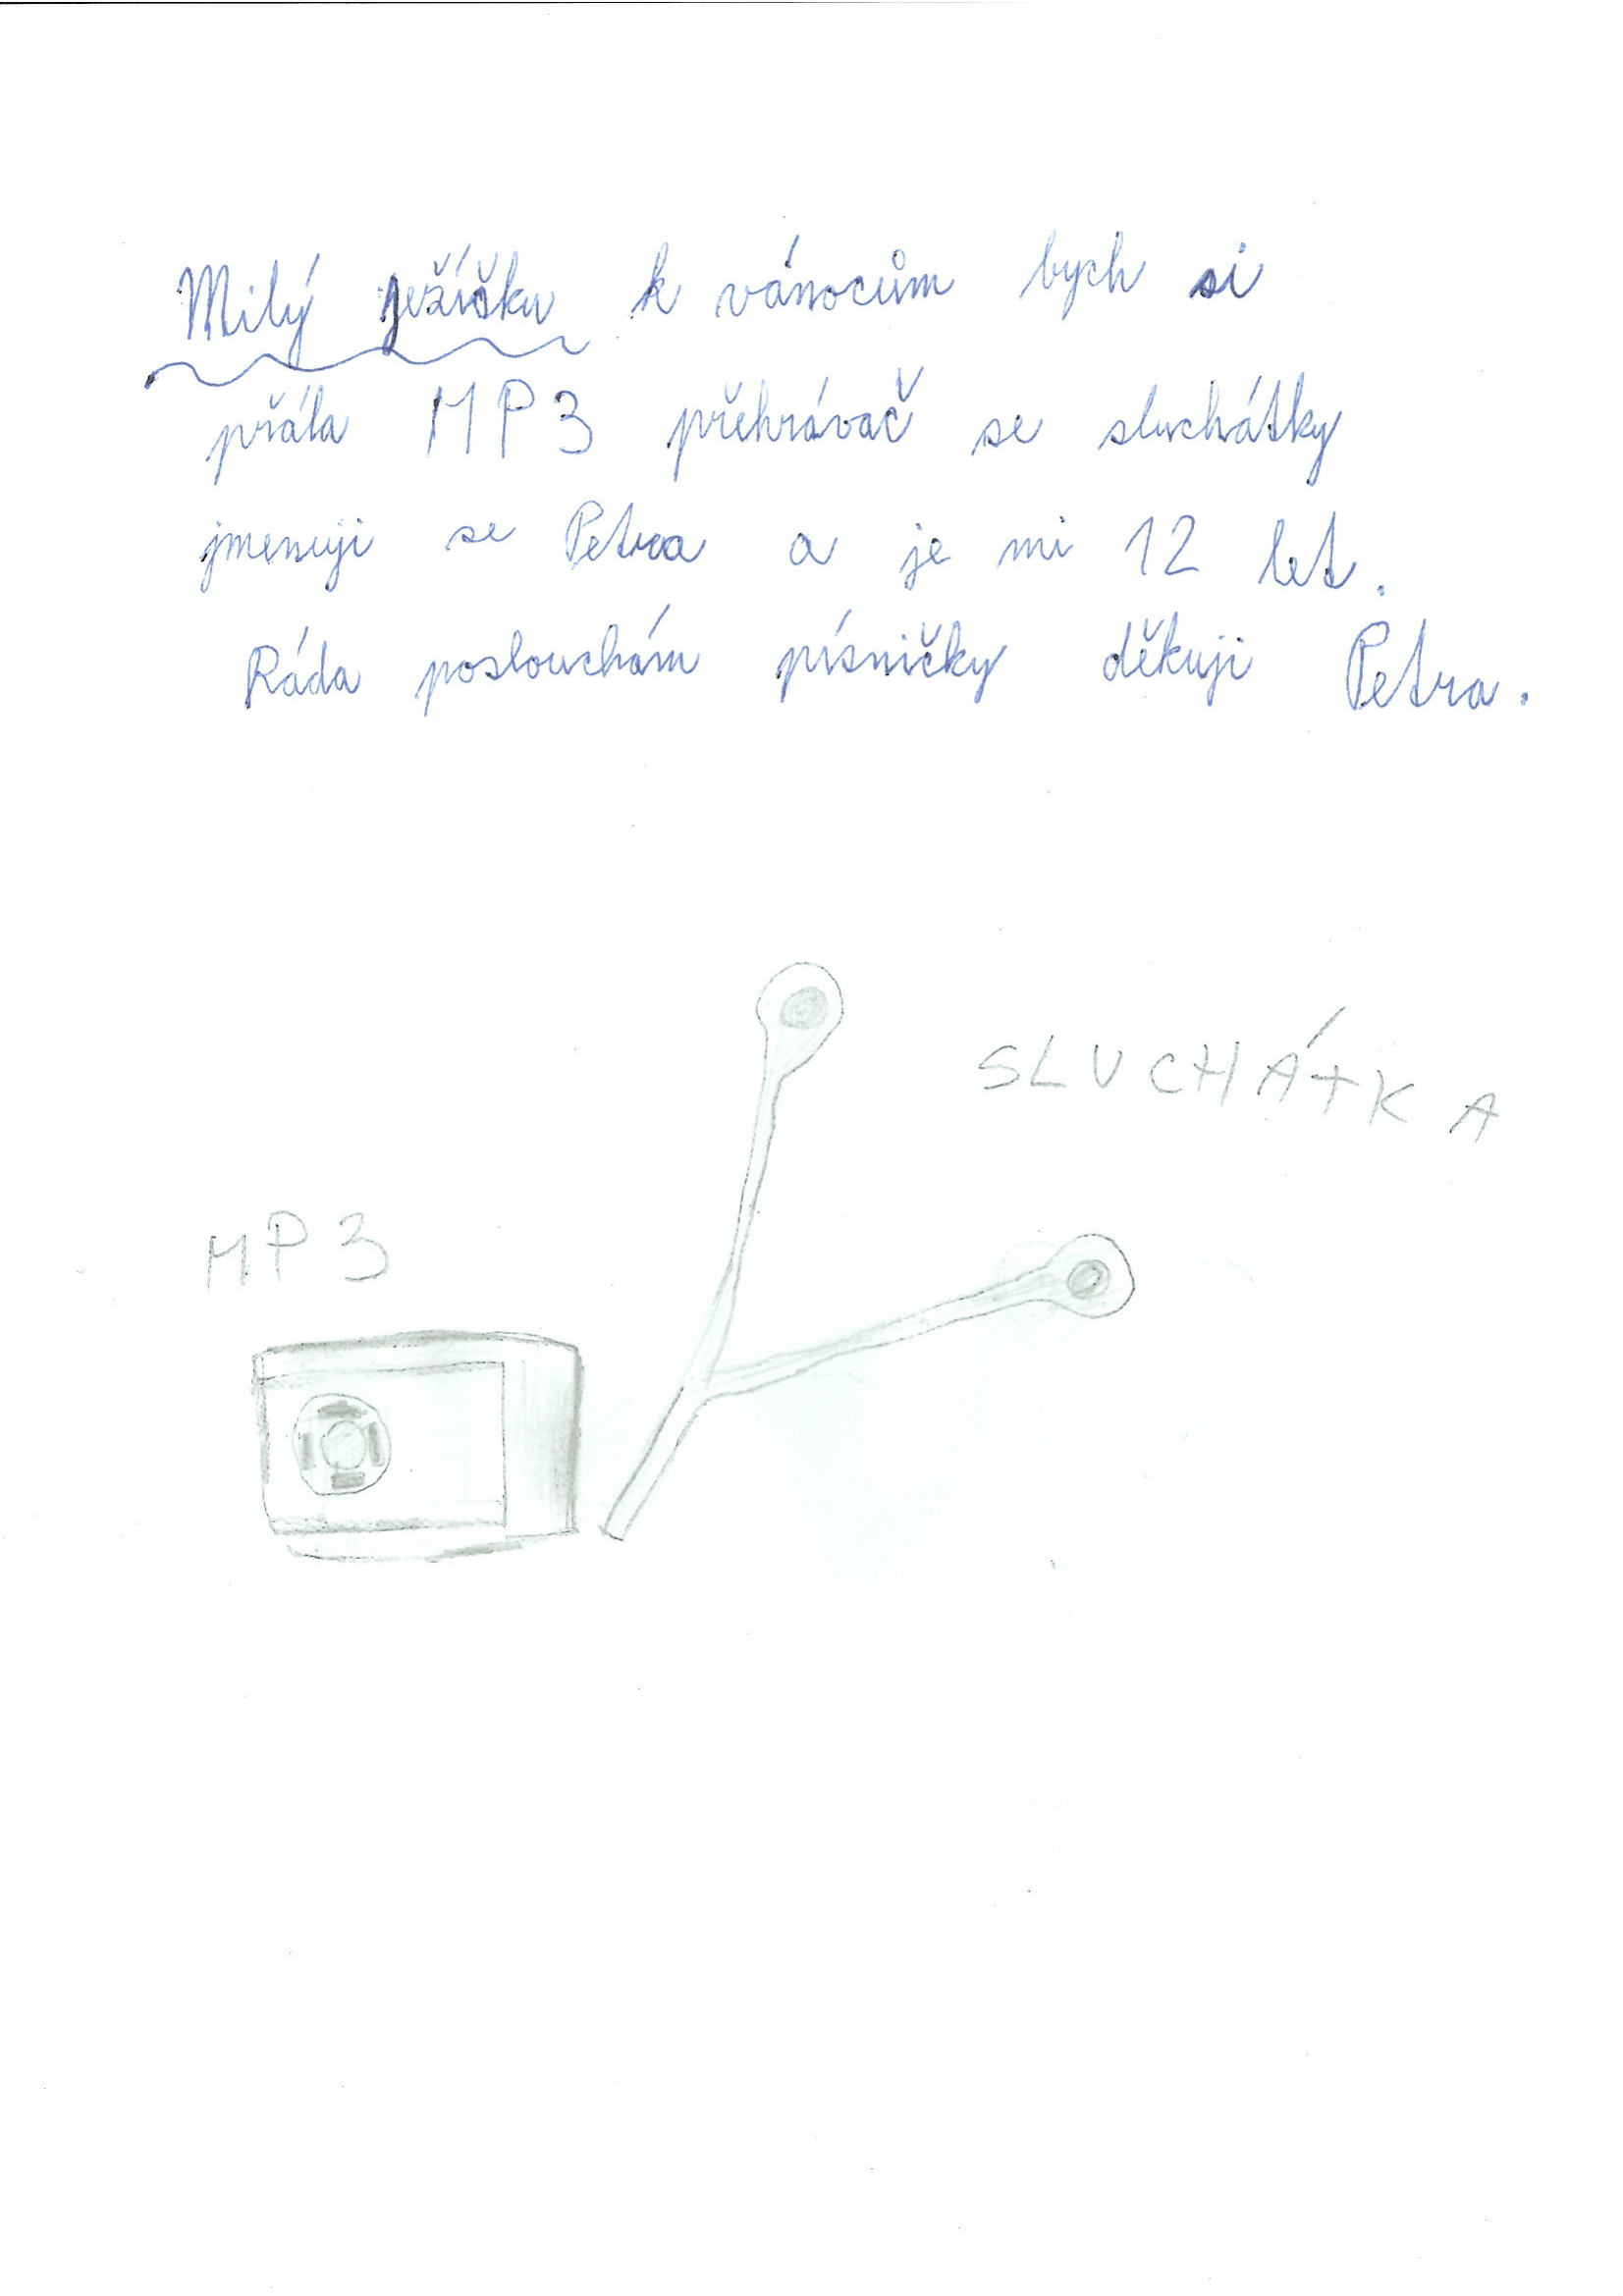 Milý ježíšku k vánocům bych si
přála MP3 přehrávač se sluchátky
jmenuji se Petra a je mi 12 let.
Ráda poslouchám písničky děkuji Petra.
SLUCHÁTKA
MP3